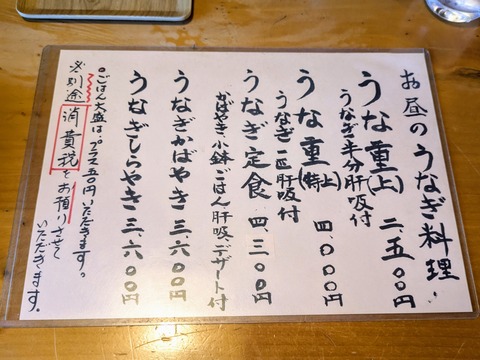 お昼のうなぎ料理
うな重(上) 二、五〇〇円
うなぎ半分肝吸付
うな重(特上) 四、〇〇〇円
うなぎ一匹肝吸付
うなぎ定食 四、三〇〇円
かばやき、小鉢、ごはん、肝吸、デザート付
うなぎかばやき 三、六〇〇円
うなぎしらやき 三、六〇〇円
○ごはん大盛は、プラス五〇円いただきます。
別途消費税をお預りさせて
いただきます。